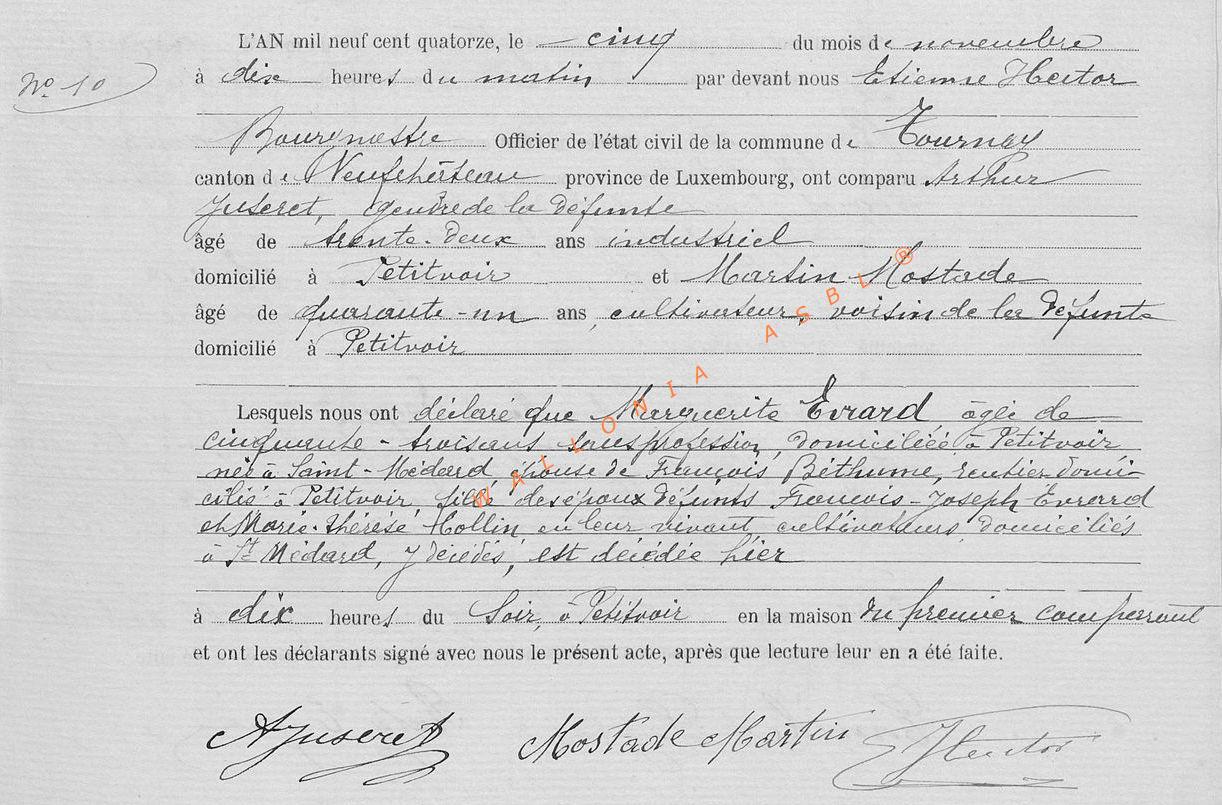 L'AN mil neuf cent quatorze, le cinq du mois de novembre
No 10
à dix heures du matin par devant nous Etienne Hector
Bourgmestre Officier de l'état civil de la commune de Tournay
canton de Neufchâteau province de Luxembourg, ont comparu Arthur
Juseret, gendre de la défunte
âgé de trente-deux ans industriel
domicilié à Petitvoir et Martin Mostade
âgé de quarante-un ans, cultivateur, voisin de la défunte
domicilié à Petitvoir
Lesquels nous ont déclaré que Marguerite Evrard âgée de
cinquante-trois ans sans profession, domiciliée à Petitvoir
née à Saint-Médard, épouse de François Béthume, rentier domi-
cilié à Petitvoir, fille des époux défunts François-Joseph Evrard
et Marie-thérèse Collin en leur vivant cultivateurs domiciliés
à St Médard, y décédés, est décédée hier
à dix heures du soir, à Petitvoir en la maison du premier comparant
et ont les déclarants signé avec nous le présent acte, après que lecture leur en a été faite.
AJuseret Mostade Martin EHector
WALLONIA ASBL ®